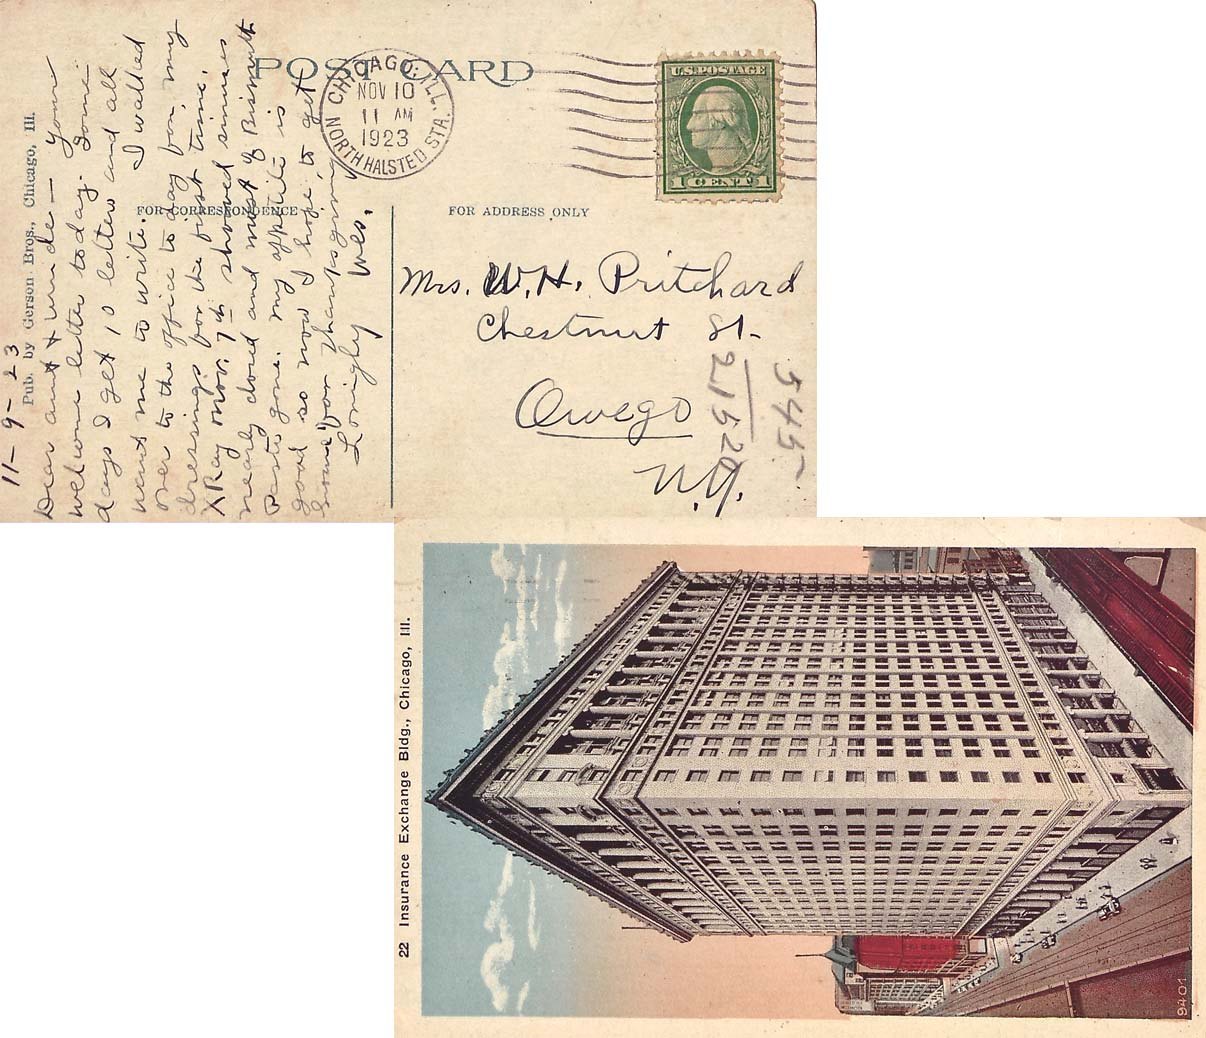 POST CARD
CHICAGO, ILL.
NOV 10
11 AM
1923
NORTH HALSTED STA.
U.S. POSTAGE
1 CENT 1
FOR CORRESPONDENCE
FOR ADDRESS ONLY
Pub. by Gerson Bros., Chicago, Ill.
11-9-23
Dear aunt & uncle — Your
welcome letter today. Some
days I get 10 letters and all
want me to write. I walked
over to the office to day for my
dressings for the first time.
XRay nov. 7th showed sinuses
nearly closed and most of Bismuth
Paste gone. my appetite is
good so now I hope to get
home for Thanksgiving
Lovingly Wes.
Mrs. W. H. Pritchard
Chestnut St.
Owego
N.Y.
5445
21520
22 Insurance Exchange Bldg., Chicago, Ill.
9401